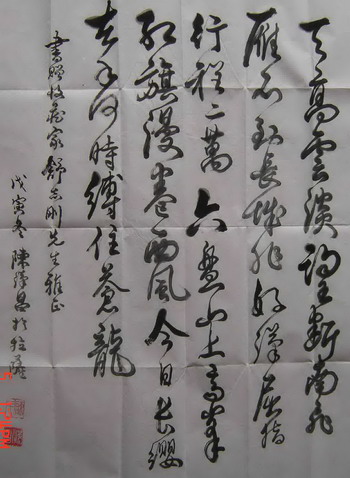 天高雲淡望斷南飛
雁不到長城非好漢屈指
行程二萬六盤山上高峯
紅旗漫卷西風今日長纓
在手何時縛住蒼龍
書贈收藏家舒志剛先生雅正
戊寅冬陳